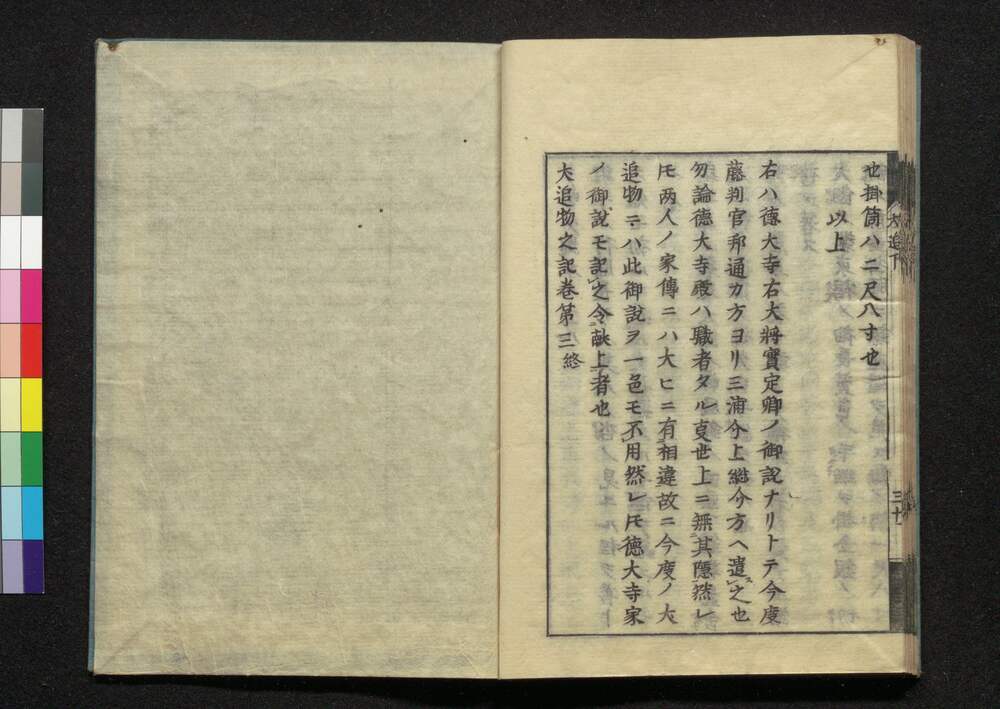 也掛筒ハ二尺八寸也
以上
右ハ德大寺右大將實定卿ノ御説ナリトテ今度
藤判官邦通カ方ヨリ三浦介上総介方ヘ遣レ之也
勿論德大寺殿ハ職者タル叓世上ニ無其隠然レ
𪜈両人ノ家傳ニハ大ヒニ有相違故ニ今度ノ犬
追物ニハ此御説ヲ一邑モ不用然レ𪜈德大寺家
ノ御説モ記レ之令献上者也
犬追物之記巻第三終
犬追下
三十